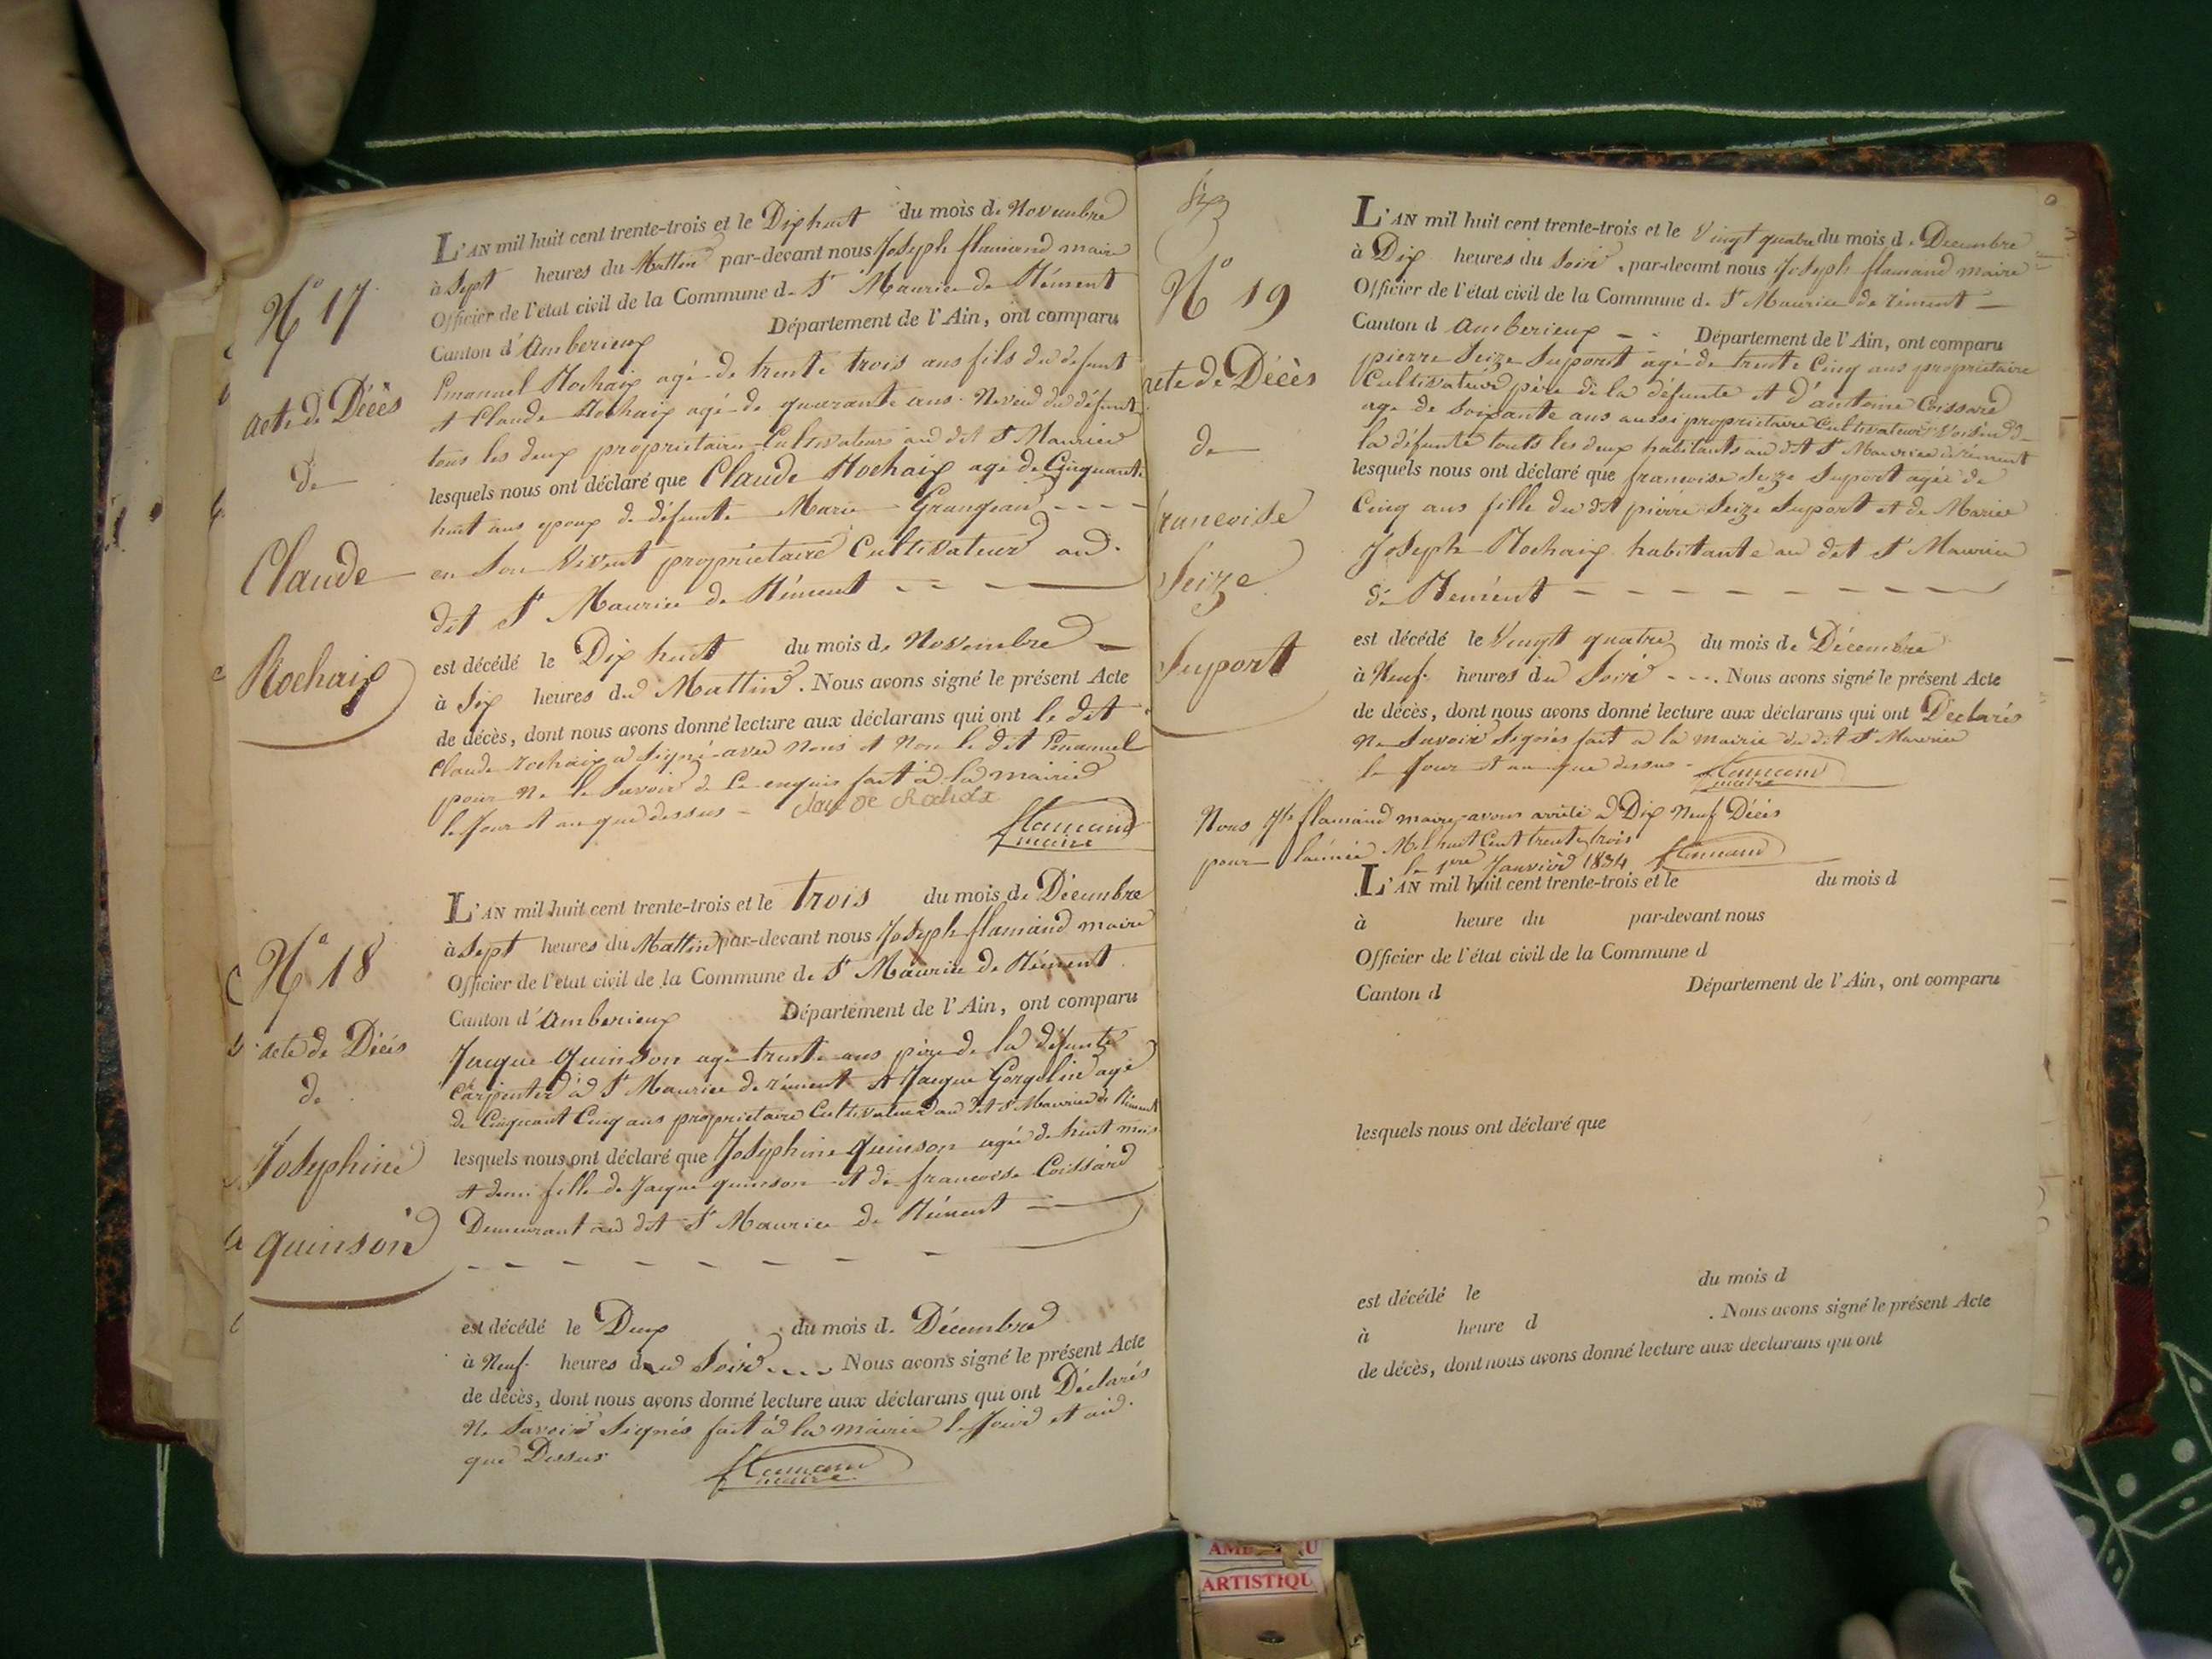 N° 17
acte de Décès
de
Claude
Rochaix
L'AN mil huit cent trente-trois et le Dix huit du mois de Novembre
à Sept heures du Mattin par-devant nous Joseph flamand maire
Officier de l'état civil de la Commune de St Maurice de Rément
Canton d'Amberieux Département de l'Ain, ont comparu
Emanuel Rochaix agé de trente trois ans fils du defunt
et Claude Rochaix agé de quarante ans Neveu du défunt
tous les deux proprietaires Cultivateurs au dit St Maurice
lesquels nous ont déclaré que Claude Rochaix age de Cinquante
huit ans epoux de défunte Marie Grangean
en Son Vivent propriétaire Cultivateur au
dit St Maurice de Rément
est décédé le Dix huit du mois de Novembre
à Six heures du Mattin. Nous avons signé le présent Acte
de décès, dont nous avons donné lecture aux déclarans qui ont le dit
Claude Rochaix a Signé avec Nous et Non le dit Emanuel
pour Ne le Savoir de Ce enquis fait à la mairie
le Jour et an que dessus
flamand
maire
N° 18
acte de Décés
de
Josephine
quinson
L'AN mil huit cent trente-trois et le trois du mois de Décembre
à Sept heures du Mattin par-devant nous Joseph flamand maire
Officier de l'état civil de la Commune de St Maurice de Rément
Canton d'Amberieux Département de l'Ain, ont comparu
Jacque quinson age trente ans père de la défunte
Carpentier à St Maurice de rément et Jacque Gorgelin agé
de Cinquant Cinq ans proprietaire Cultivateur au dit St Maurice de Rément
lesquels nous ont déclaré que Josephine quinson agée de huit mois
et demi fille de Jacque quinson et de francoise Coissard
Demeurant au dit St Maurice de Rément
est décédé le Deux du mois de Décembre
à Neuf heures du Soir Nous avons signé le présent Acte
de décès, dont nous avons donné lecture aux déclarans qui ont Déclarés
Ne Savoir Signés fait à la mairie le Jour et an
que Dessus
flamand
maire
Six
N° 19
acte de Décès
de
francoise
Seize
Suport
L'AN mil huit cent trente-trois et le Vingt quatre du mois d. Decembre
à Dix heures du Soir, par-devant nous Joseph flamand maire
Officier de l'état civil de la Commune d. St Maurice de rément
Canton d Amberieux Département de l'Ain, ont comparu
pierre Seize Suport agé de trente Cinq ans propriétaire
Cultivateur père de la défunte et d'antoine Coissard
age de Soixante ans aussi proprietaire Cultivateur Voisin de
la défunte touts les deux habitants au dit St Maurice de rément
lesquels nous ont déclaré que francoise Seize Suport agée de
Cinq ans fille du dit pierre Seize Suport et de Marie
Joseph Rochaix habitante au dit St Maurice
de Rément
est décédé le Vingt quatre du mois de Décembre
à Neuf heures du Soir Nous avons signé le présent Acte
de décès, dont nous avons donné lecture aux déclarans qui ont Déclarés
Ne Savoir Signés fait a la mairie du dit St Maurice
le Jour et an que dessus
flamand
maire
Nous Jh flamand maire avons arrété a Dix Neuf Décés
pour l'année Mil huit Cent trente trois
le 1er Janvier 1834 flamand
L'AN mil huit cent trente-trois et le du mois d
à heure du par-devant nous
Officier de l'état civil de la Commune d
Canton d Département de l'Ain, ont comparu
lesquels nous ont déclaré que
est décédé le du mois d
à heure d . Nous avons signé le présent Acte
de décès, dont nous avons donné lecture aux déclarans qui ont
ARTISTIQU